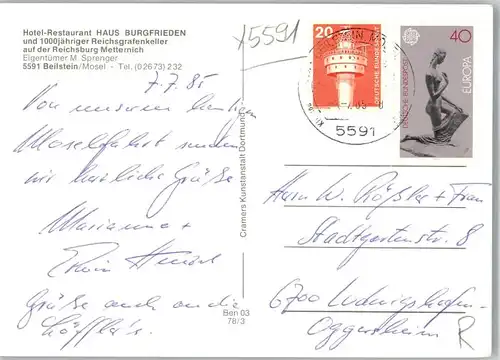 Hotel-Restaurant HAUS BURGFRIEDEN
und 1000jähriger Reichsgrafenkeller
auf der Reichsburg Metternich
Eigentümer M. Sprenger
5591 Beilstein/Mosel - Tel. (02673) 232
x5591
20
DEUTSCHE BUNDESPOST
40
EUROPA
DEUTSCHE BUNDESPOST
BEILSTEIN, MOSEL
5591
7.7.85
Von unserer heutigen
Moselfahrt senden
wir herzliche Grüße
Marianne +
Erwin
Grüße auch an die
Löffler's.
Cramers Kunstanstalt Dortmund
Ben 03
78/3
Herrn W. Rößler + Frau
Stadtgartenstr. 8
6700 Ludwigshafen-
Oggersheim
R